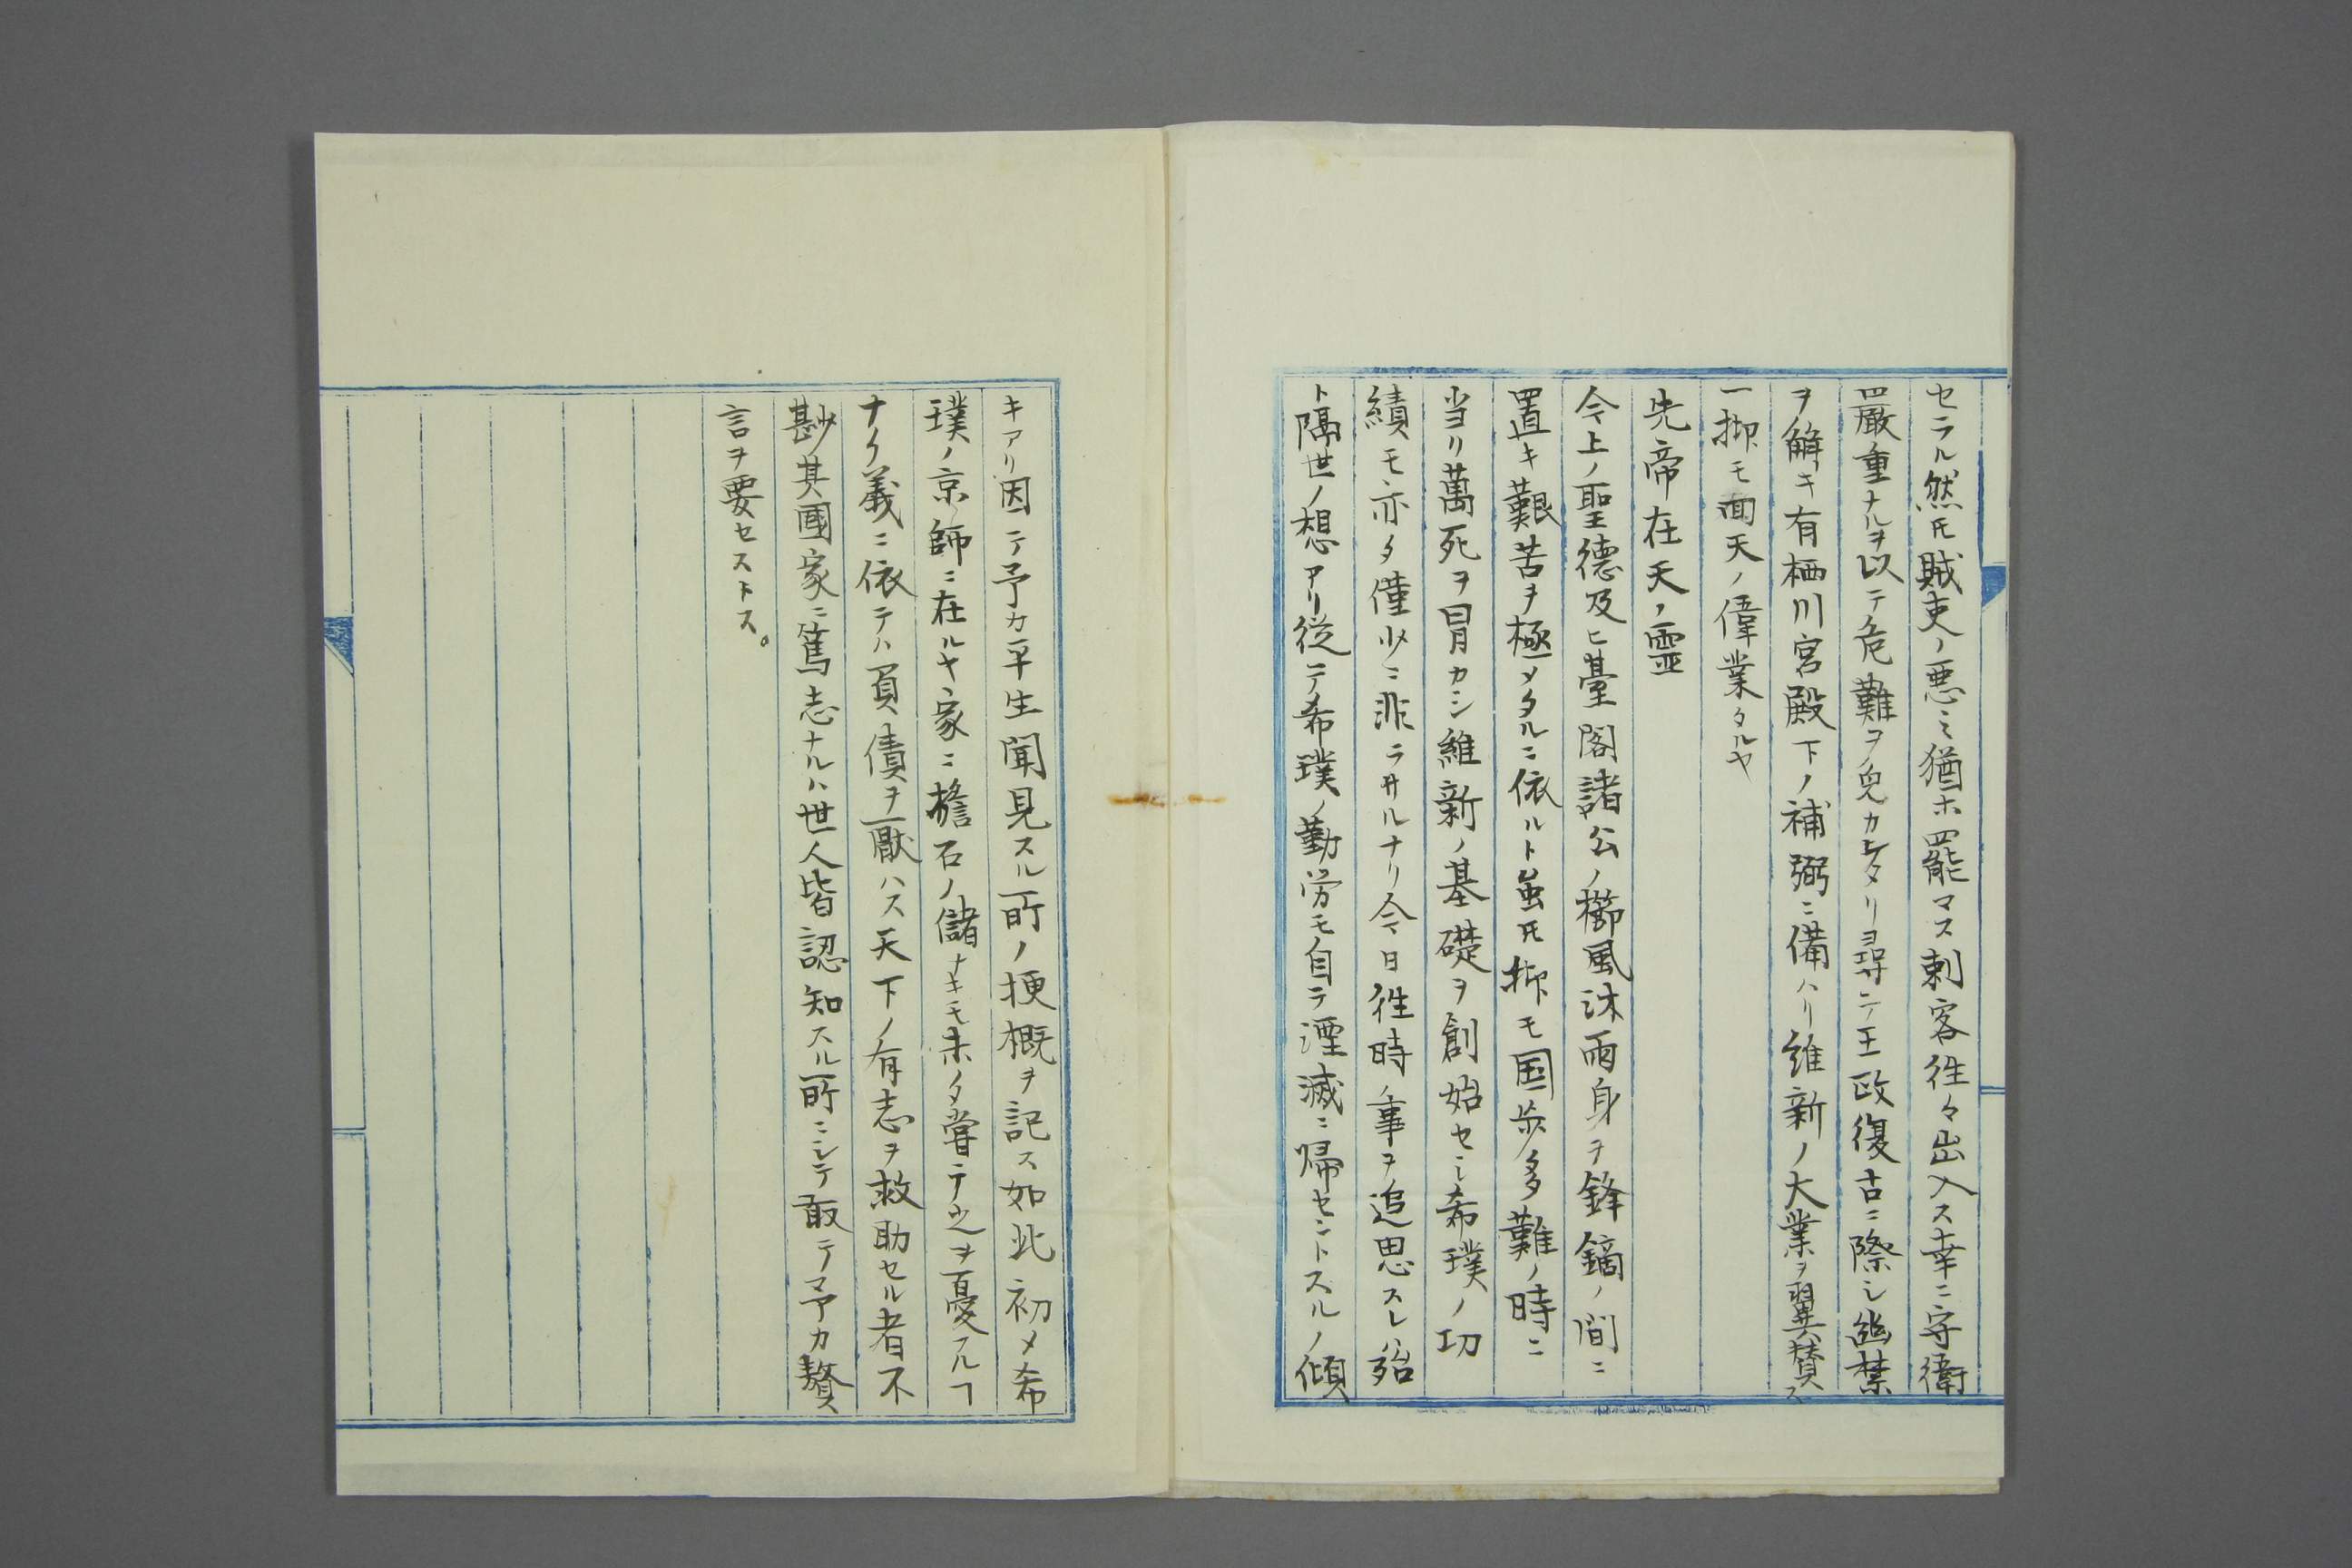 セラル然𪜈賊吏ノ悪ミ猶ホ罷マス刺客徃々出入ス幸ニ守衛
嚴重ナルヲ以テ危難ヲ免カレタリ尋テ王政復古ニ際シ幽禁
ヲ解キ有栖川宮殿下ノ補弼ニ備ハリ維新ノ大業ヲ翼賛ス
一抑モ回天ノ偉業タルヤ
先帝在天ノ靈
今上ノ聖徳及ヒ臺閣諸公ノ櫛風沐雨身ヲ鋒鏑ノ間ニ
置キ艱苦ヲ極メタルニ依ルト虽𪜈抑モ国歩多難ノ時ニ
当リ萬死ヲ冒カシ維新ノ基礎ヲ創始セシ希璞ノ功
績モ亦タ僅少ニ非ラサルナリ今日徃時ノ事ヲ追思スレハ殆
ト隔世ノ想アリ従テ希璞ノ勤労モ自テ湮滅ニ帰セントスルノ傾
キアリ因テ予カ平生聞見スル所ノ梗概ヲ記ス如此初メ希
璞ノ京師ニ在ルヤ家ニ檐石ノ儲ナキモ未タ嘗テ之ヲ憂フルヿ
ナク義ニ依テハ負債ヲ厭ハス天下ノ有志ヲ救助セル者不
尠其國家ニ篤志ナルハ世人皆認知スル所ニシテ敢テ予カ贅
言ヲ要セストス。